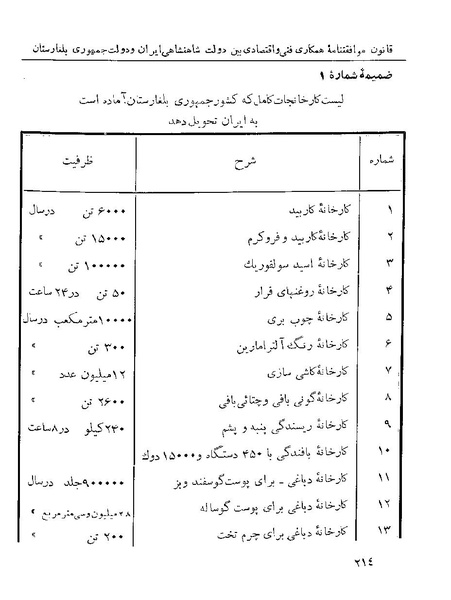 قانون موافقتنامهٔ همکاری فنی واقتصادی بین دولت شاهنشاهی ایران ودولت جمهوری بلغارستان
ضمیمهٔ شمارهٔ ۱
لیست کارخانجات کامل که کشور جمهوری بلغارستان آماده است
به ایران تحویل دهد
شماره شرح ظرفیت
۱ کارخانهٔ کاربید ۶۰۰۰ تن درسال
۲ کارخانهٔ کاربید و فروکرم ۱۵۰۰۰ تن »
۳ کارخانهٔ اسید سولفوریك ۱۰۰۰۰۰ تن »
۴ کارخانهٔ روغنهای فرار ۵۰ تن در۲۴ ساعت
۵ کارخانهٔ چوب بری ۱۰۰۰۰مترمکعب درسال
۶ کارخانهٔ رنگ آلترامارین ۳۰۰ تن »
۷ کارخانهٔ کاشی سازی ۱۲میلیون عدد »
۸ کارخانهٔ گونی بافی وچتائی بافی ۲۶۰۰ تن »
۹ کارخانهٔ ریسندگی پنبه و پشم ۲۴۰کیلو در۸ساعت
۱۰ کارخانهٔ بافندگی با ۴۵۰ دستگاه و۱۵۰۰۰ دوك
۱۱ کارخانهٔ دباغی ـ برای پوست گوسفند وبز ۹۰۰۰۰۰جلد درسال
۱۲ کارخانهٔ دباغی برای پوست گوساله میلیون وسی مترمربع »
۱۳ کارخانهٔ دباغی برای چرم تخت ۲۰۰ تن »
۲۱۴